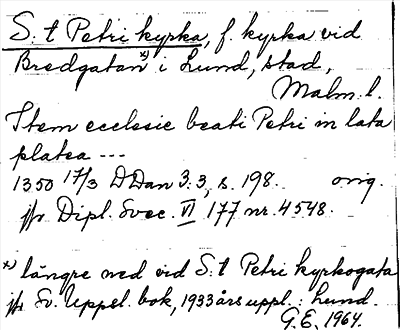 S. t Petri kyrka, f. kyrka vid
Bredgatan x) i Lund, stad,
Malm. l.
Item ecclesie beati Petri in lata
platea ---
1350 17/3 DDan 3:3, s. 198. orig.
jfr Dipl. Svec. VI 177 nr. 4548.
x) längre ned vid S. t Petri kyrkogata
jfr Sv. Uppsl. bok, 1933 års uppl.: Lund.
G.E. 1964.